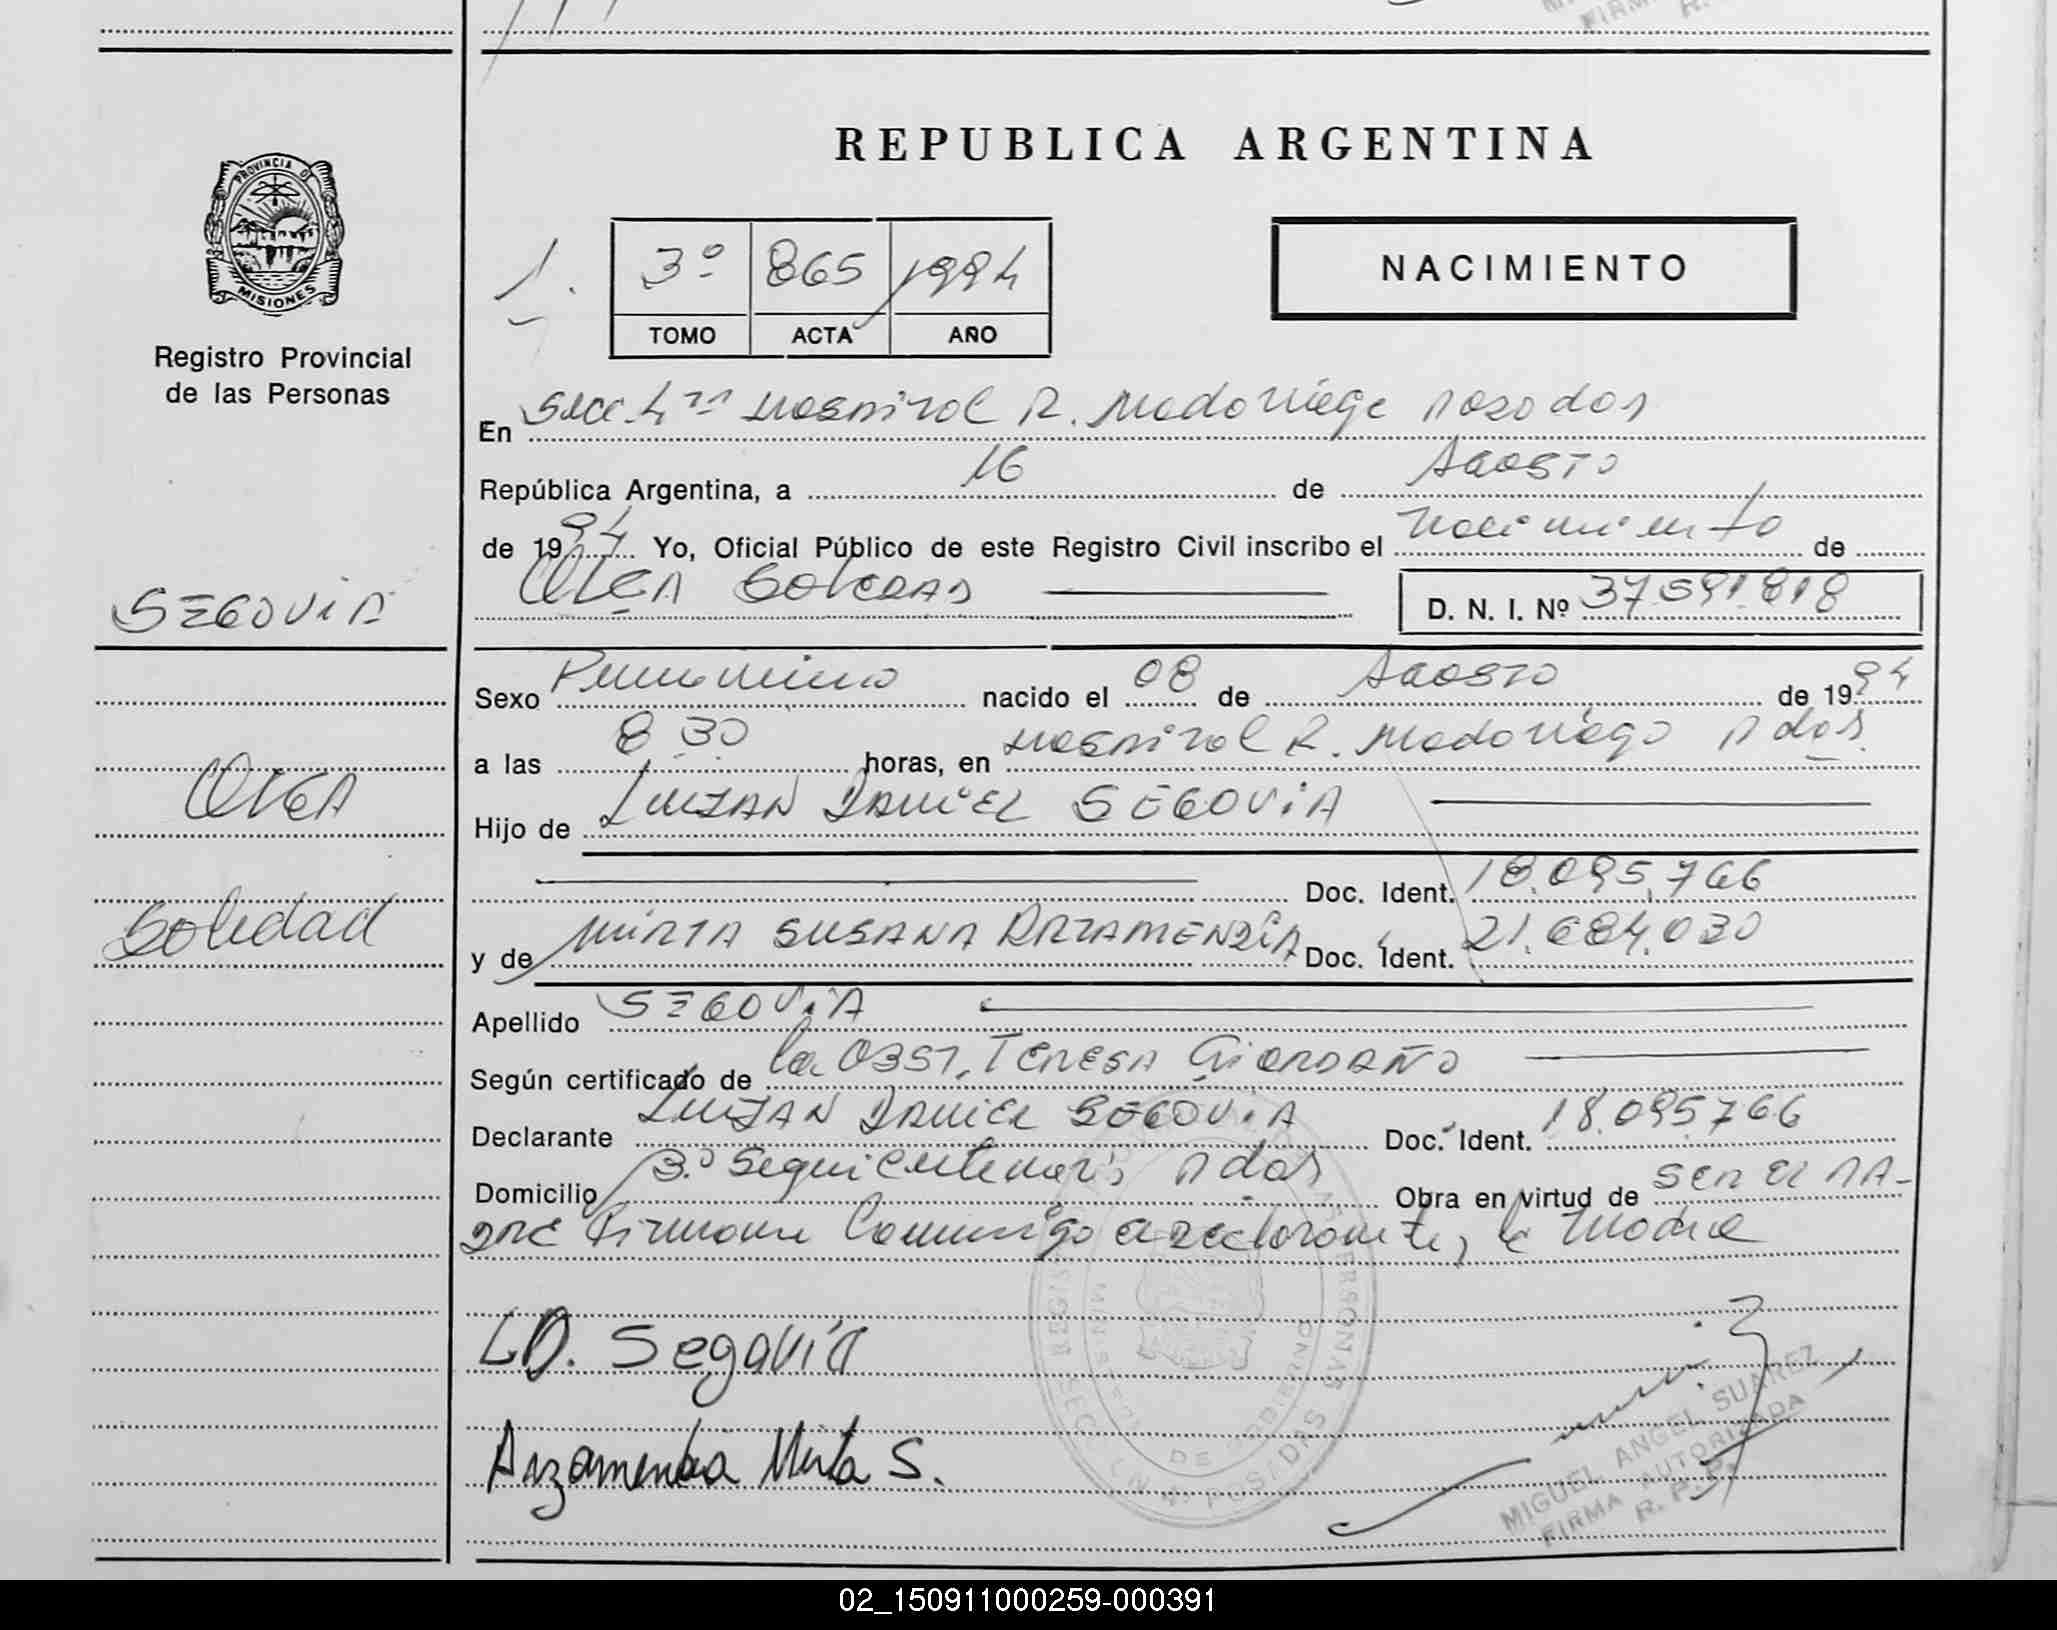 REPUBLICA ARGENTINA
PROVINCIA D
MISIONES
Registro Provincial
de las Personas
1.
3º 865 1994
TOMO ACTA AÑO
NACIMIENTO
En Secc 4ta Hospital R. Madariaga Posadas
República Argentina, a 16 de Agosto
de 1994 Yo, Oficial Público de este Registro Civil inscribo el nacimiento de
OLGA SOLEDAD
D. N. I. Nº 37.591.818
SEGOVIA
OLGA
Soledad
Sexo Femenino nacido el 08 de Agosto de 1994
a las 8 30 horas, en Hospital R. Madariaga Pdas
Hijo de LUJAN DANIEL SEGOVIA
Doc. Ident. 18.095.766
y de MIRTA SUSANA ARZAMENDIA Doc. Ident. 21.684.030
Apellido SEGOVIA
Según certificado de la OBST. TERESA GIORDANO
Declarante LUJAN DANIEL SEGOVIA Doc. Ident. 18.095766
Domicilio Bº Sequicentenario Pdas Obra en virtud de SER EL PA-
DRE Firman Conmigo el declarante y la Madre
L.D. Segovia
Arzamendia Mirta S.
MIGUEL ANGEL SUAREZ
FIRMA AUTORIZADA
R. P. P.
02_150911000259-000391